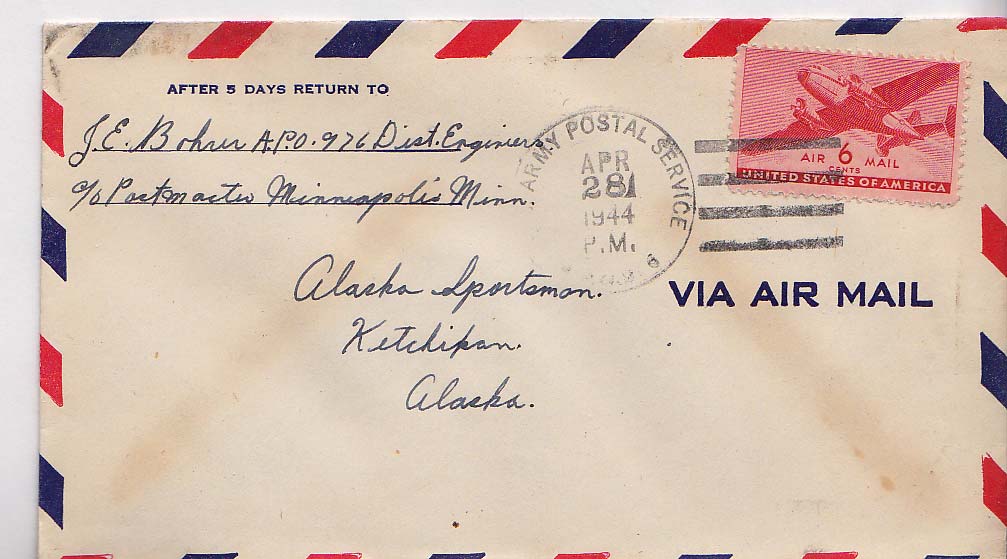 AFTER 5 DAYS RETURN TO
J.E. Bohrer A.P.O. 976 Dist. Engineers
c/o Postmaster Minneapolis Minn.
ARMY POSTAL SERVICE
APR
28
1944
P.M.
AIR 6 MAIL
CENTS
UNITED STATES OF AMERICA
VIA AIR MAIL
Alaska Sportsman.
Ketchikan.
Alaska.